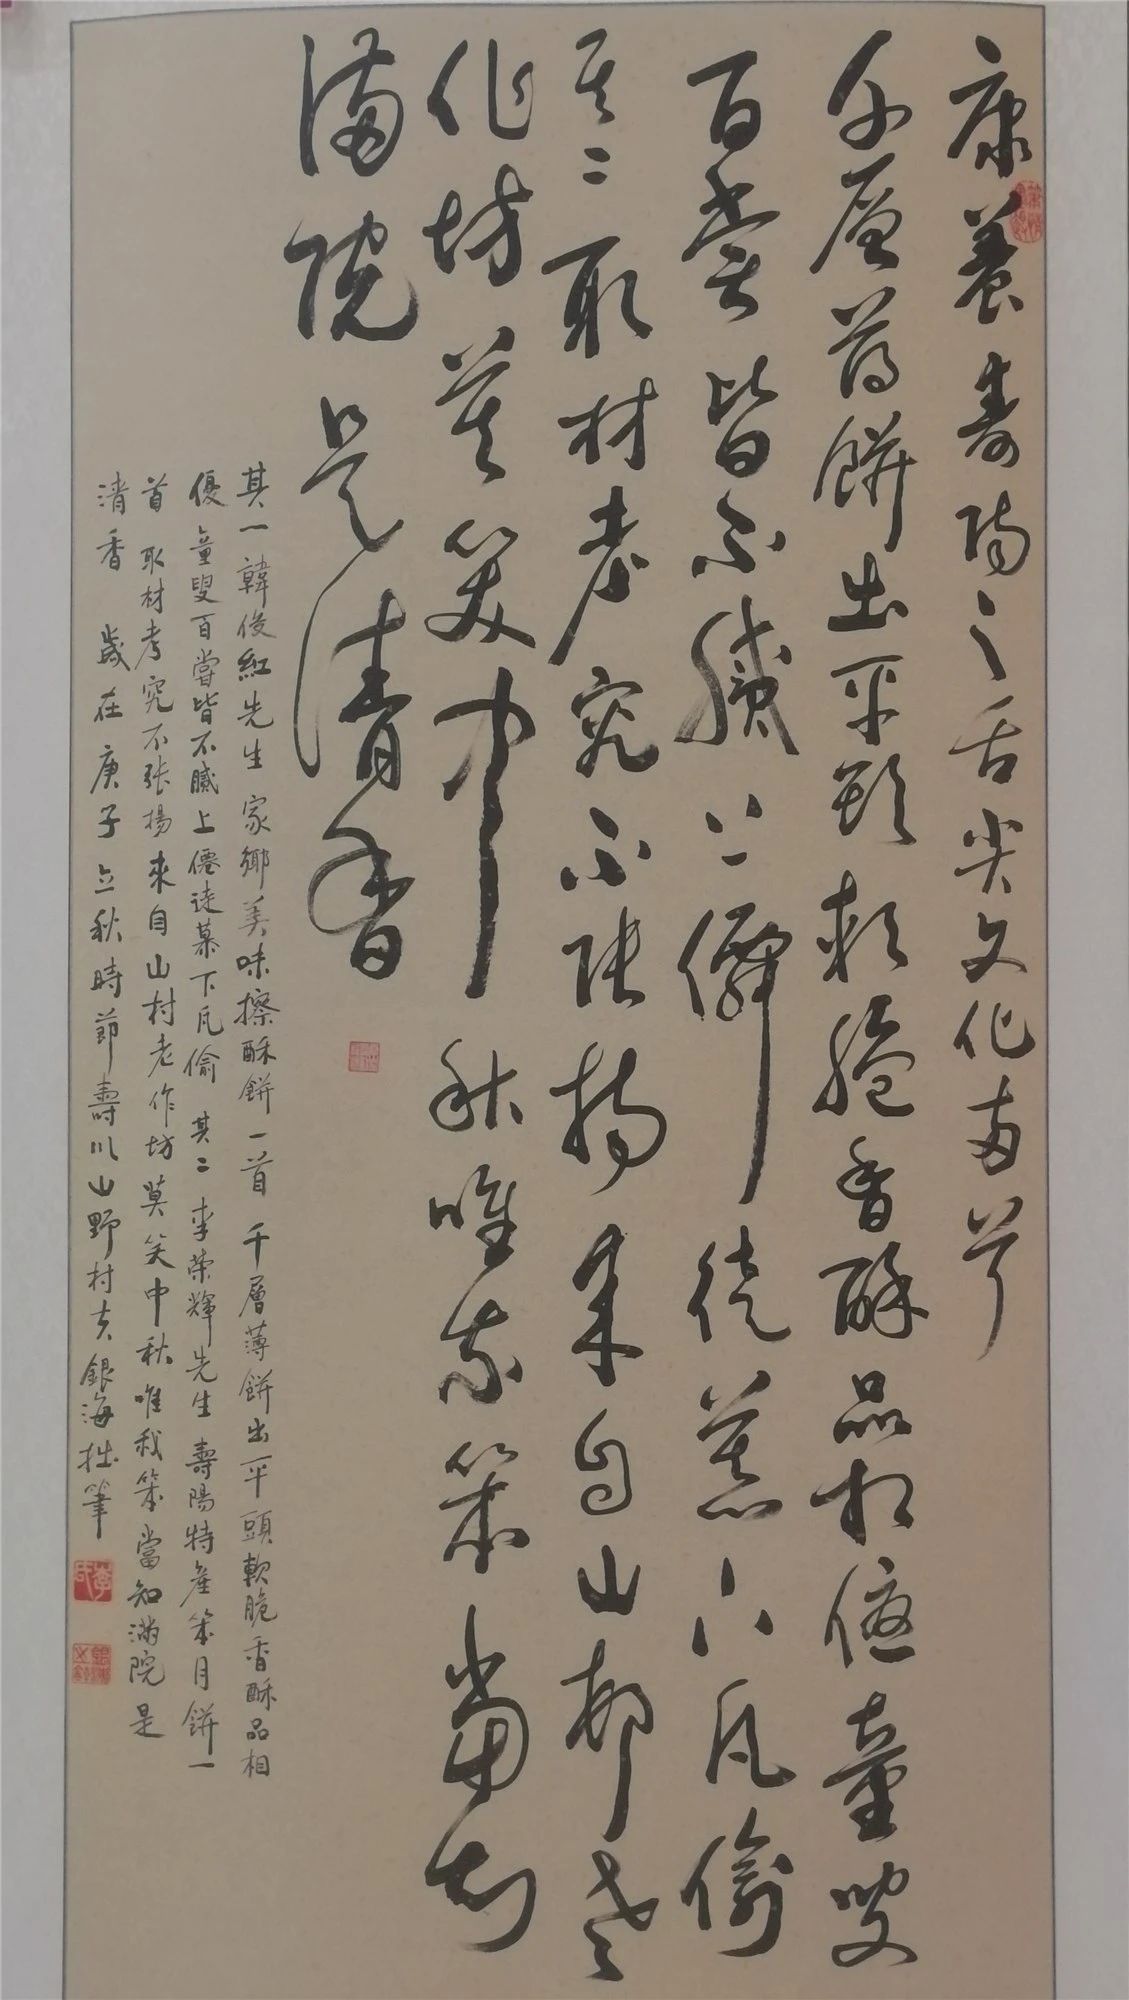 康養壽陽之舌尖文化两首
千層薄餅出平頭軟脆香酥品相優童叟
百嘗皆不膩上僊徒慕下凡偷
其二取材考究不張揚來自山村老
作坊莫笑中秋唯我笨當知
滿院是清香
其一韓俊紅先生家鄉美味擦酥餅一首千層薄餅出平頭軟脆香酥品相
優童叟百嘗皆不膩上僊徒慕下凡偷其二李榮輝先生壽陽特產笨月餅一
首取材考究不張揚來自山村老作坊莫笑中秋唯我笨當知滿院是
清香歲在庚子立秋時節壽川山野村夫銀海拙筆